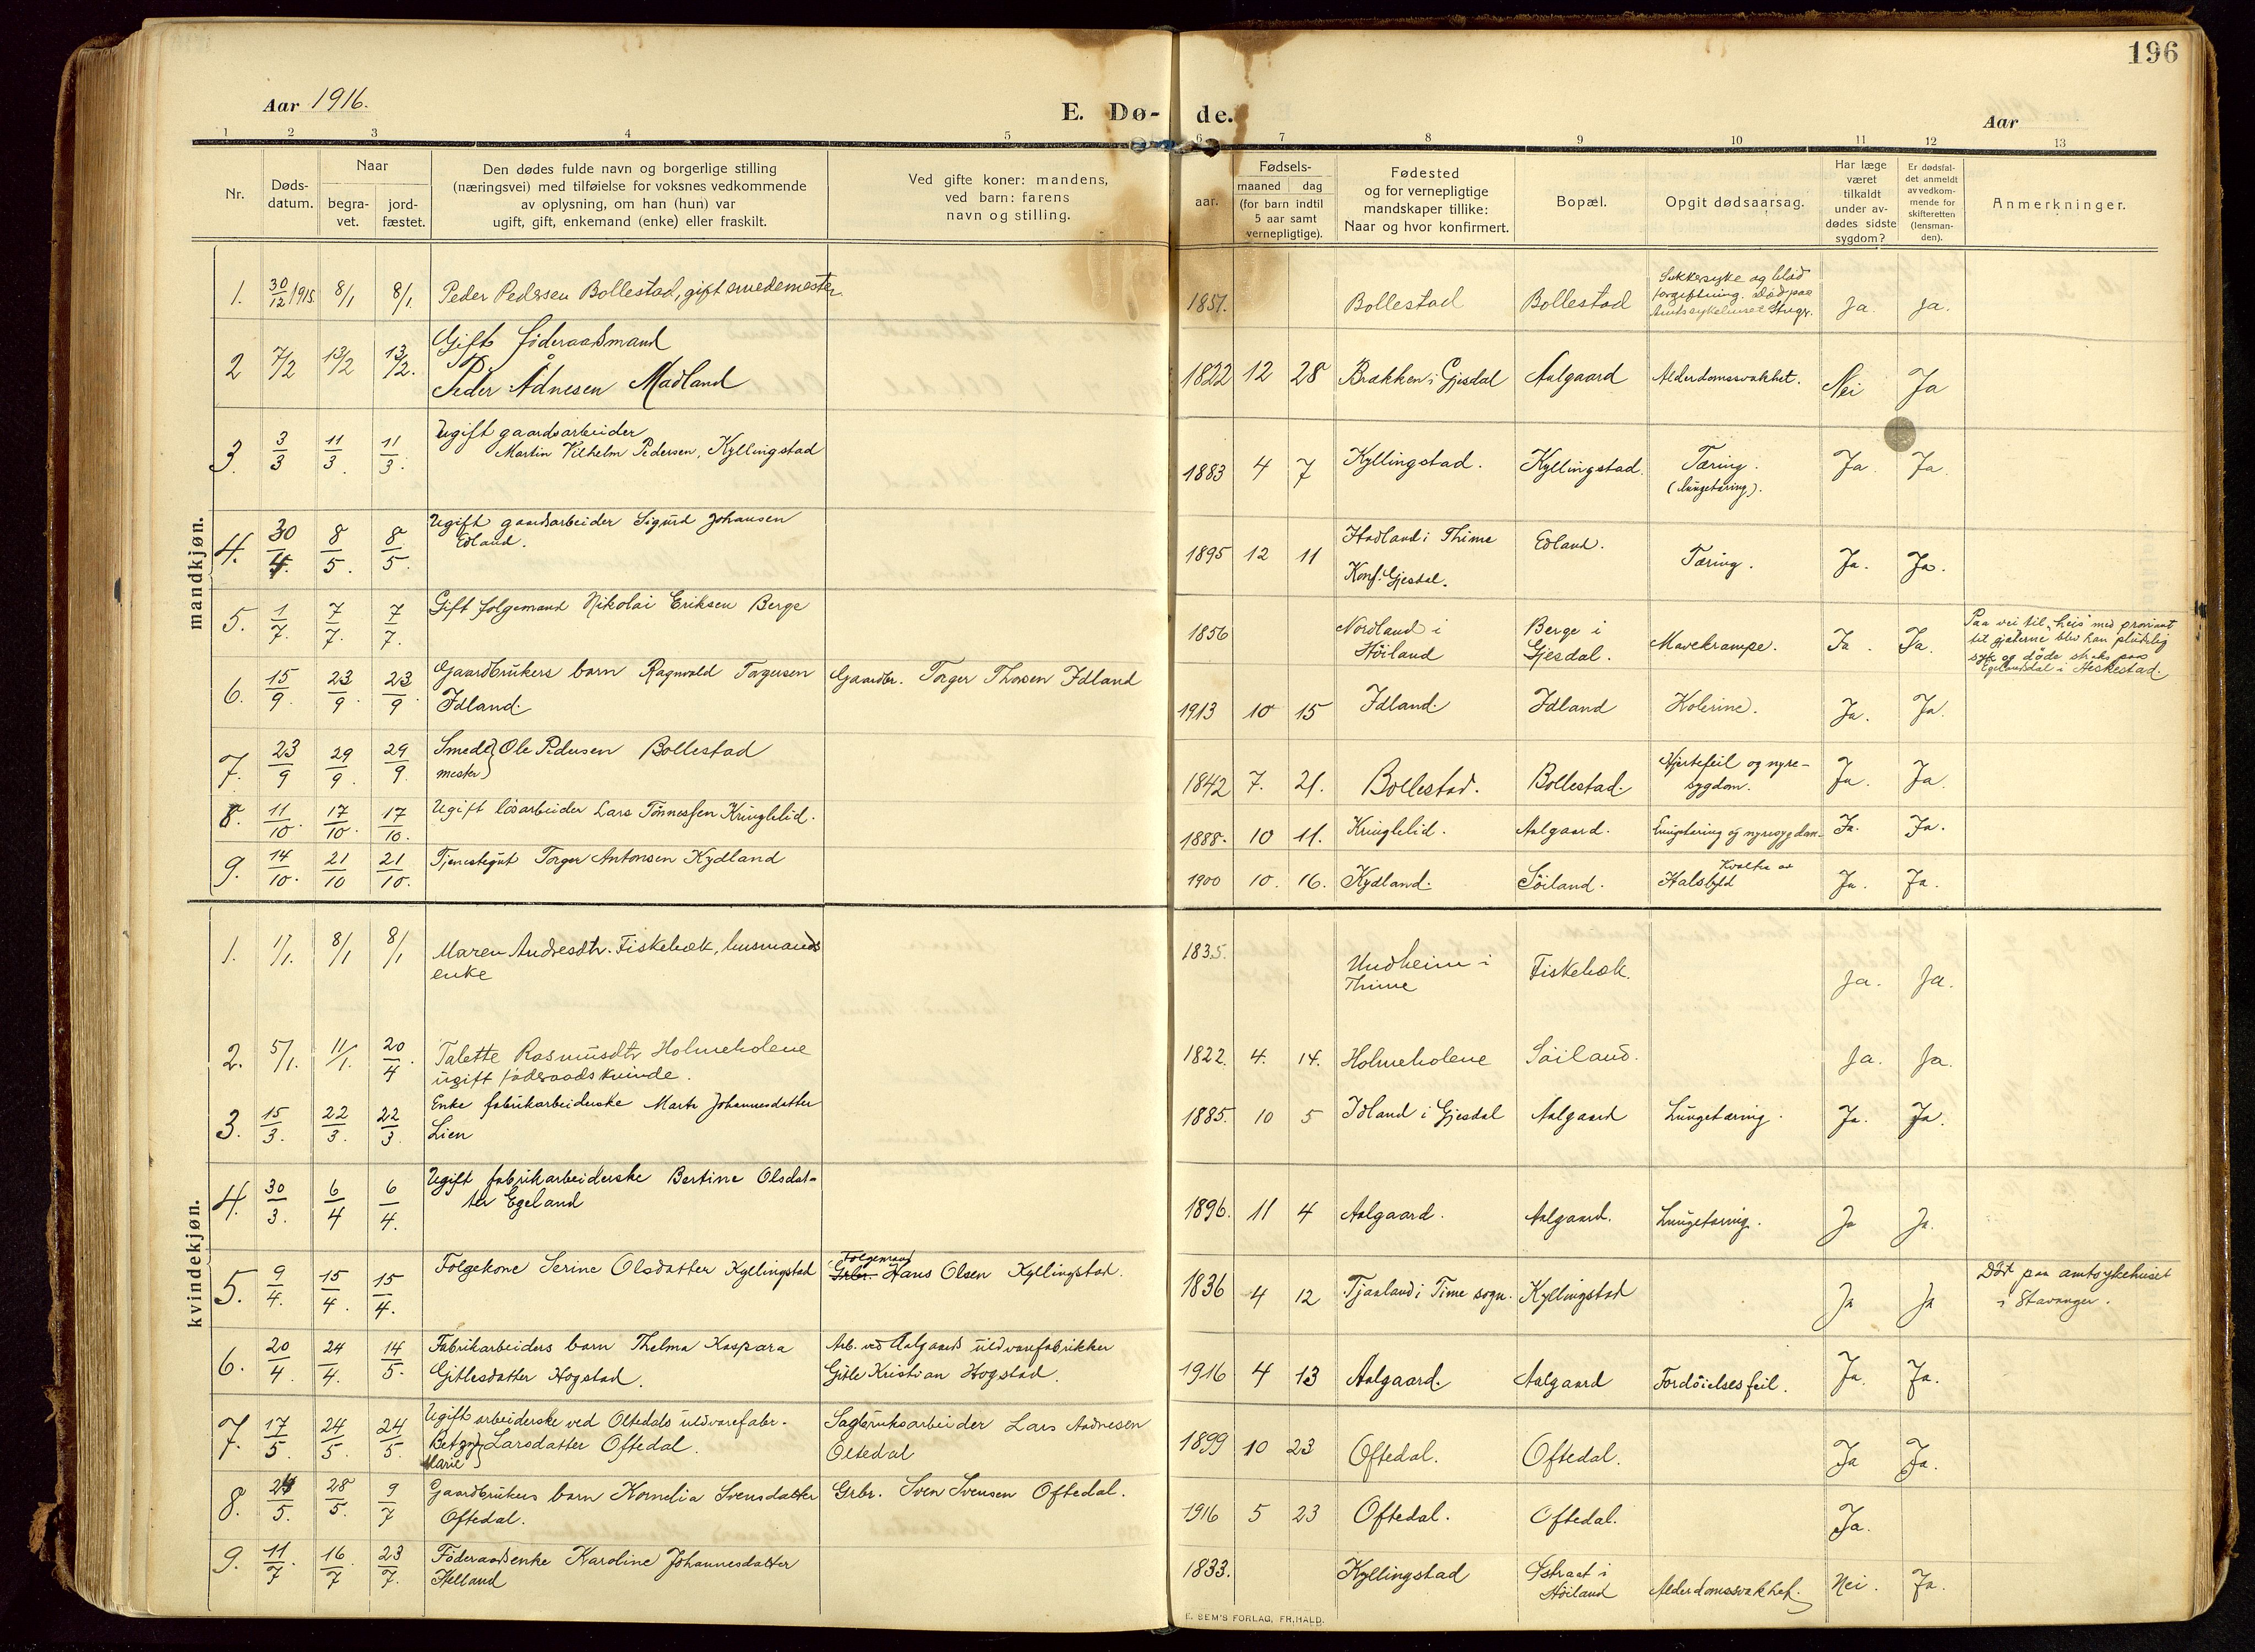 196
Aar 1916.
E. Dø- de.
Aar
1 2 3 4 5 6 7 8 9 10 11 12 13
Nr.
Døds-
datum.
Naar
begra-
vet.
jord-
fæstet.
Den dødes fulde navn og borgerlige stilling
(næringsvei) med tilføielse for voksnes vedkommende
av oplysning, om han (hun) var
ugift, gift, enkemand (enke) eller fraskilt.
Ved gifte koner: mandens,
ved barn: farens
navn og stilling.
Fødsels-
aar.
maaned dag
(for barn indtil
5 aar samt
vernepligtige).
Fødested
og for vernepligtige
mandskaper tillike:
Naar og hvor konfirmert.
Bopæl.
Opgit dødsaarsag.
Har læge
været
tilkaldt
under av-
dødes sidste
sygdom?
Er dødsfal-
det anmeldt
av vedkom-
mende for
skifteretten
(lensman-
den).
Anmerkninger.
mandkjøn.
1. 30/12 1915 8/1 8/1. Peder Pedersen Bollestad, gift smedemester 1851. Bollestad Bollestad Sukkersyke og blod
forgiftning. Død paa
Amtssykehuset Stvgr. Ja. Ja.
2 7/2 13/2 13/2. Gift føderaadsmand
Peder Ådnesen Madland 1822 12 28 Brækken i Gjesdal Aalgaard Alderdomssvakhet. Nei Ja
3. 3/3 11/3. 11/3. Ugift gaardsarbeider
Martin Vilhelm Pedersen, Kyllingstad 1883 4 7 Kyllingstad. Kyllingstad. Tæring.
(Lungetæring). Ja. Ja.
4. 30/4. 8/5. 8/5. Ugift gaardsarbeider Sigurd Johansen
Edland. 1895 12 11 Hadland i Thime
Konf. Gjesdal. Edland. Tæring. Ja. Ja.
5. 1/7. 7/7. 7/7. Gift følgemand Nikolai Eriksen Berge 1856 Nordland i
Höiland Berge i
Gjesdal. Mavekrampe. Ja. Ja. Paa vei til heis med proviant
til gjæterne blev han pludselig
syk og døde straks paa
Egelandsdal i Heskestad.
6. 15/9. 23/9. 23/9. Gaardbrukers barn Ragnvald Torgersen
Idland. Gaardbr. Torger Thorsen Idland 1913 10 15 Idland. Idland Kolerine. Ja. Ja.
7. 23/9 29/9. 29/9. Smede
mester } Ole Pedersen Bollestad 1842 7. 21. Bollestad. Bollestad. Hjertefeil og nyre-
sygdom. Ja. Ja.
8. 11/10. 17/10. 17/10. Ugift løsarbeider Lars Tönnessen Kringlelid. 1888. 10 11. Kringlelid. Aalgaard. Lungetæring og nyresygdom. Ja. Ja.
9. 14/10. 21/10 21/10. Tjenestegut Torger Antonsen Kydland 1900 10. 16. Kydland. Söiland. Kvalte av
Halsbyld Ja. Ja.
kvindekjøn.
1. 1/1. 8/1 8/1 Maren Andresdtr. Fiskebæk, husmands
enke 1835. Undheim i
Thime Fiskebæk. Ja. Ja.
2. 5/1. 11/1. 20/4. Talette Rasmusdtr Holmeholene
ugift føderaadskvinde. 1822. 4. 14. Holmeholene Söiland. Ja. Ja.
3. 15/3. 22/3. 22/3. Enke fabrikarbeiderske Marta Johannesdatter
Lien 1885. 10 5 Idland i Gjesdal Aalgaard Lungetæring. Ja. Ja.
4. 30/3. 6/4 6/4. Ugift fabrikarbeiderske Bertine Olsdat-
ter Egeland 1896. 11 4 Aalgaard. Aalgaard. Lungetæring. Ja Ja.
5. 9/4. 15/4. 15/4. Folgekone Serine Olsdatter Kyllingstad Folgemand
Grbr. Hans Olsen Kyllingstad. 1836 4 12 Tjaaland i Time sogn. Kyllingstad Ja Ja Död paa amtsykehuset
i Stavanger.
6. 20/4. 24/4. 14/5. Fabrikarbeiders barn Thelma Kaspara
Gitlesdatter Hogstad. Arb. ved Aalgaards uldvarefabrikker
Gitle Kristian Hogstad. 1916 4 13 Aalgaard. Aalgaard Fordöielsesfeil. Ja. Ja.
7. 17/5. 24/5. 24/5. Ugift arbeiderske ved Oltedals uldvarefabr.
Betzy
Marie } Larsdatter Oftedal. Sagbruksarbeider Lars Aadnesen
Oltedal 1899 10 23 Oftedal. Oftedal. Ja Ja.
8. 24/5. 28/5. 9/7 Gaardbrukers barn Kornelia Svensdatter
Oftedal. Grbr. Sven Svensen Oftedal. 1916 5 23 Oftedal. Oftedal. Ja.
9. 11/7. 16/7. 23/7. Föderaadsenke Karoline Johannesdatter
Helland 1833. Kyllingstad Østraat i
Höiland Alderdomssvakhet. Nei. Ja.
E. SEM'S FORLAG, FR.HALD.